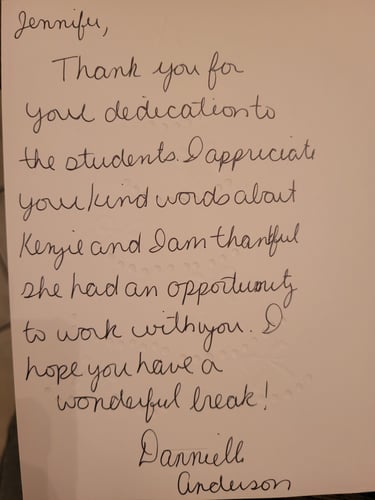 Jennifer,
Thank you for
your dedication to
the students. I appreciate
your kind words about
Kenzie and I am thankful
she had an opportunity
to work with you. I
hope you have a
wonderful break!
Dannielle
Anderson